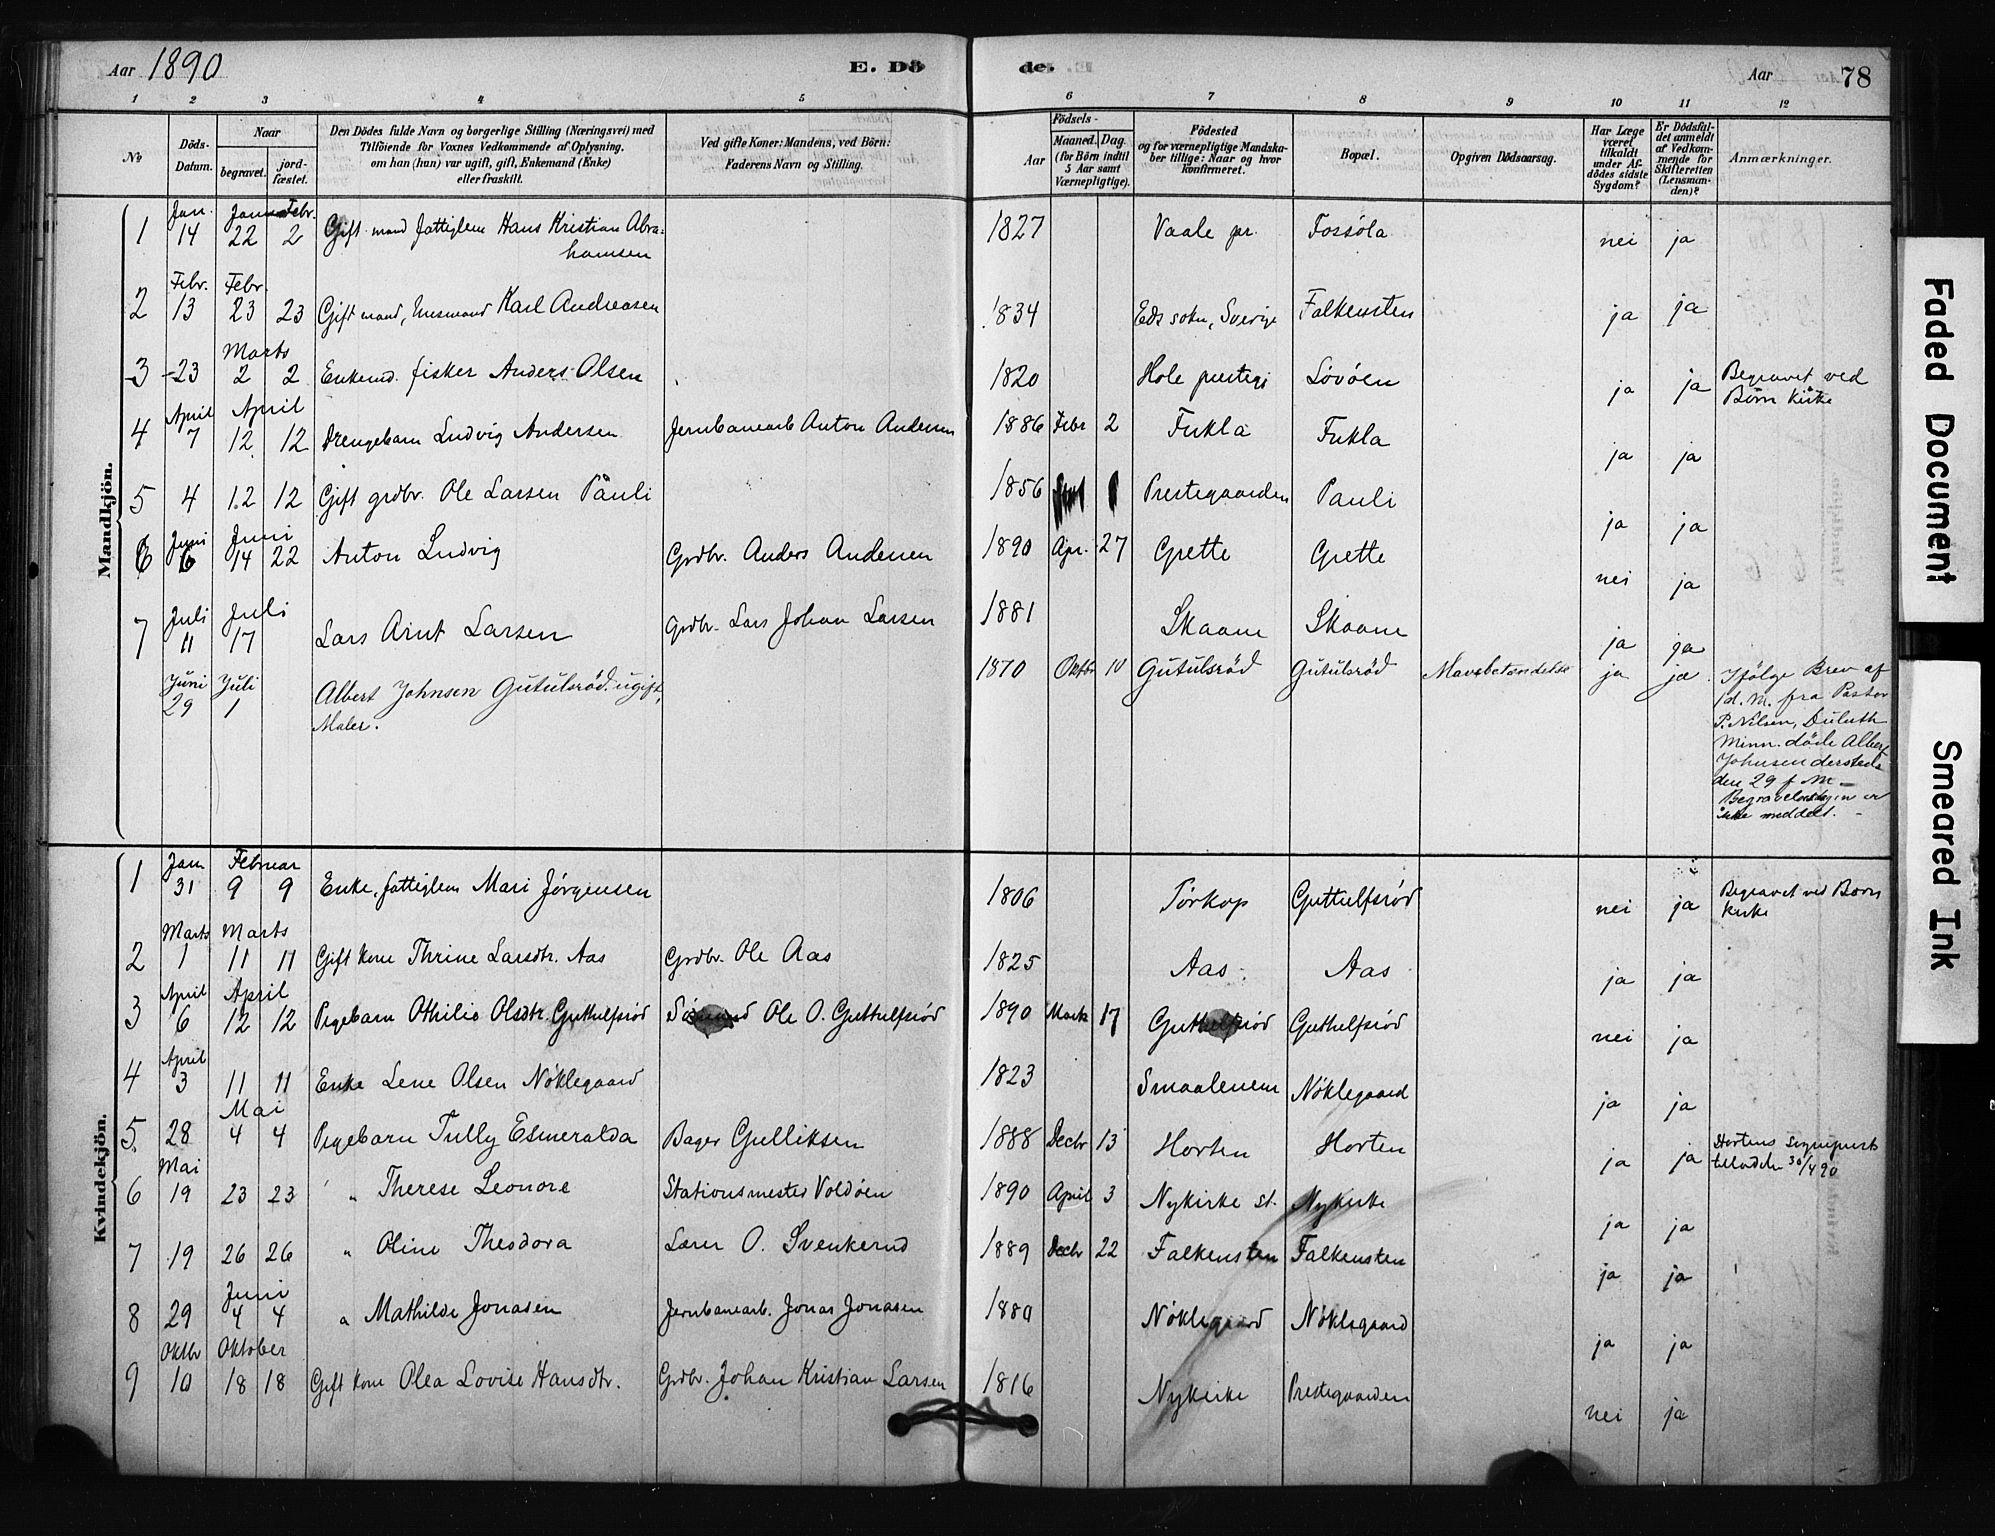 Aar 1890 E. Dö de. Aar 78
1 2 3 4 5 6 7 8 9 10 11 12
No Döds-Datum. Naar begravet. jordfæstet. Den Dödes fulde Navn og borgerlige Stilling (Næringsvei) med Tilföiende for Voxnes Vedkommende af Oplysning, om han (hun) var ugift, gift, Enkemand (Enke) eller fraskilt. Ved gifte Koner: Mandens, ved Börn: Faderens Navn og Stilling. Aar Födsels- Maaned. Dag. (for Börn indtil 5 Aar samt Værnepligtige). Födested og for værnepligtige Mandskaber tillige: Naar og hvor konfirmeret. Bopæl. Opgiven Dödsaarsag. Har Læge været tilkaldt under Afdödes sidste Sygdom? Er Dödsfaldet anmeldt af Vedkommende for Skifteretten (Lensmanden)? Anmærkninger.
Mandkjön.
1 Jan. 14 Jan 22 Febr. 2 Gift mand fattiglem Hans Kristian Abrahamsen 1827 Vaale pr. Fossöla nei ja
2 Febr. 13 Febr. 23 23 Gift mand, Husmand Karl Andreasen 1834 Eds sokn, Sverige Falkensten ja ja
3 -23 Marts 2 2 Enkemd. fisker Anders Olsen 1820 Hole prestegj Lövöen ja ja Begravet ved Börn Kirke
4 April 7 April 12 12 Drengebarn Ludvig Andersen Jernbanearb Anton Andersen 1886 Febr 2 Fukla Fukla ja ja
5 4 12 12 Gift grdbr. Ole Larsen Pauli 1856 Prestegaarden Pauli ja ja
6 Juni 6 Juni 14 22 Anton Ludvig Grdbr. Anders Andersen 1890 Apr. 27 Grette Grette nei ja
7 Juli 11 Juli 17 Lars Arnt Larsen Grdbr. Lars Johan Larsen 1881 Skaane Skaane ja ja
Juni 29 Juli 1 Albert Johnsen Gutulsröd. ugift, Maler. 1870 Oktbr 10 Gutulsröd Gutulsröd Mavebetændelse ja ja Ifölge Brev af
1 d. M. fra Pastor
P. Nilsen, Duluth
Minn. döde Albert
Johnsen dersteds
den 29 f. M. –
Begravelsesdagen er
ikke meddelt. –
Kvindekjön.
1 Jan 31 Februar 9 9 Enke, fattiglem Mari Jörgensen 1806 Törkop Guttulfsröd nei ja Begravet ved Börn Kirke
2 Marts 1 Marts 11 11 Gift kone Thrine Larsdtr. Aas Grdbr. Ole Aas 1825 Aas Aas ja ja
3 April 6 April 12 12 Pigebarn Othilie Olsdtr. Guthulfsröd Sömand Ole O. Guthulfsröd 1890 Marts 17 Guthulfsröd Guthulfsröd nei ja
4 April 3 11 11 Enke Lene Olsen Nöklegaard 1823 Smaalenene Nöklegaard ja ja
5. 28 Mai 4 4 Pigebarn Tully Esmeralda Bager Gulliksen 1888 Decbr 13 Horten Horten ja ja Hortens sogneprests tilladelse 30/4 90
6 Mai 19 23 23 " Therese Leonore Stationsmester Voldöen 1890 April 3 Nykirke st. Nykirke ja ja
7 19 26 26 " Oline Theodora Lærer O. Svenkerud 1889 Decbr 22 Falkensten Falkensten ja ja
8 29 Juni 4 4 " Mathilde Jonasen Jernbanearb. Jonas Jonasen 1880 Nöklegaard Nöklegaard ja ja
9 Oktbr 10 Oktober 18 18 Gift kone Olea Lovise Hansdtr. Grdbr. Johan Kristian Larsen 1816 Nykirke Prestegaarden nei ja
Faded Document
Smeared Ink